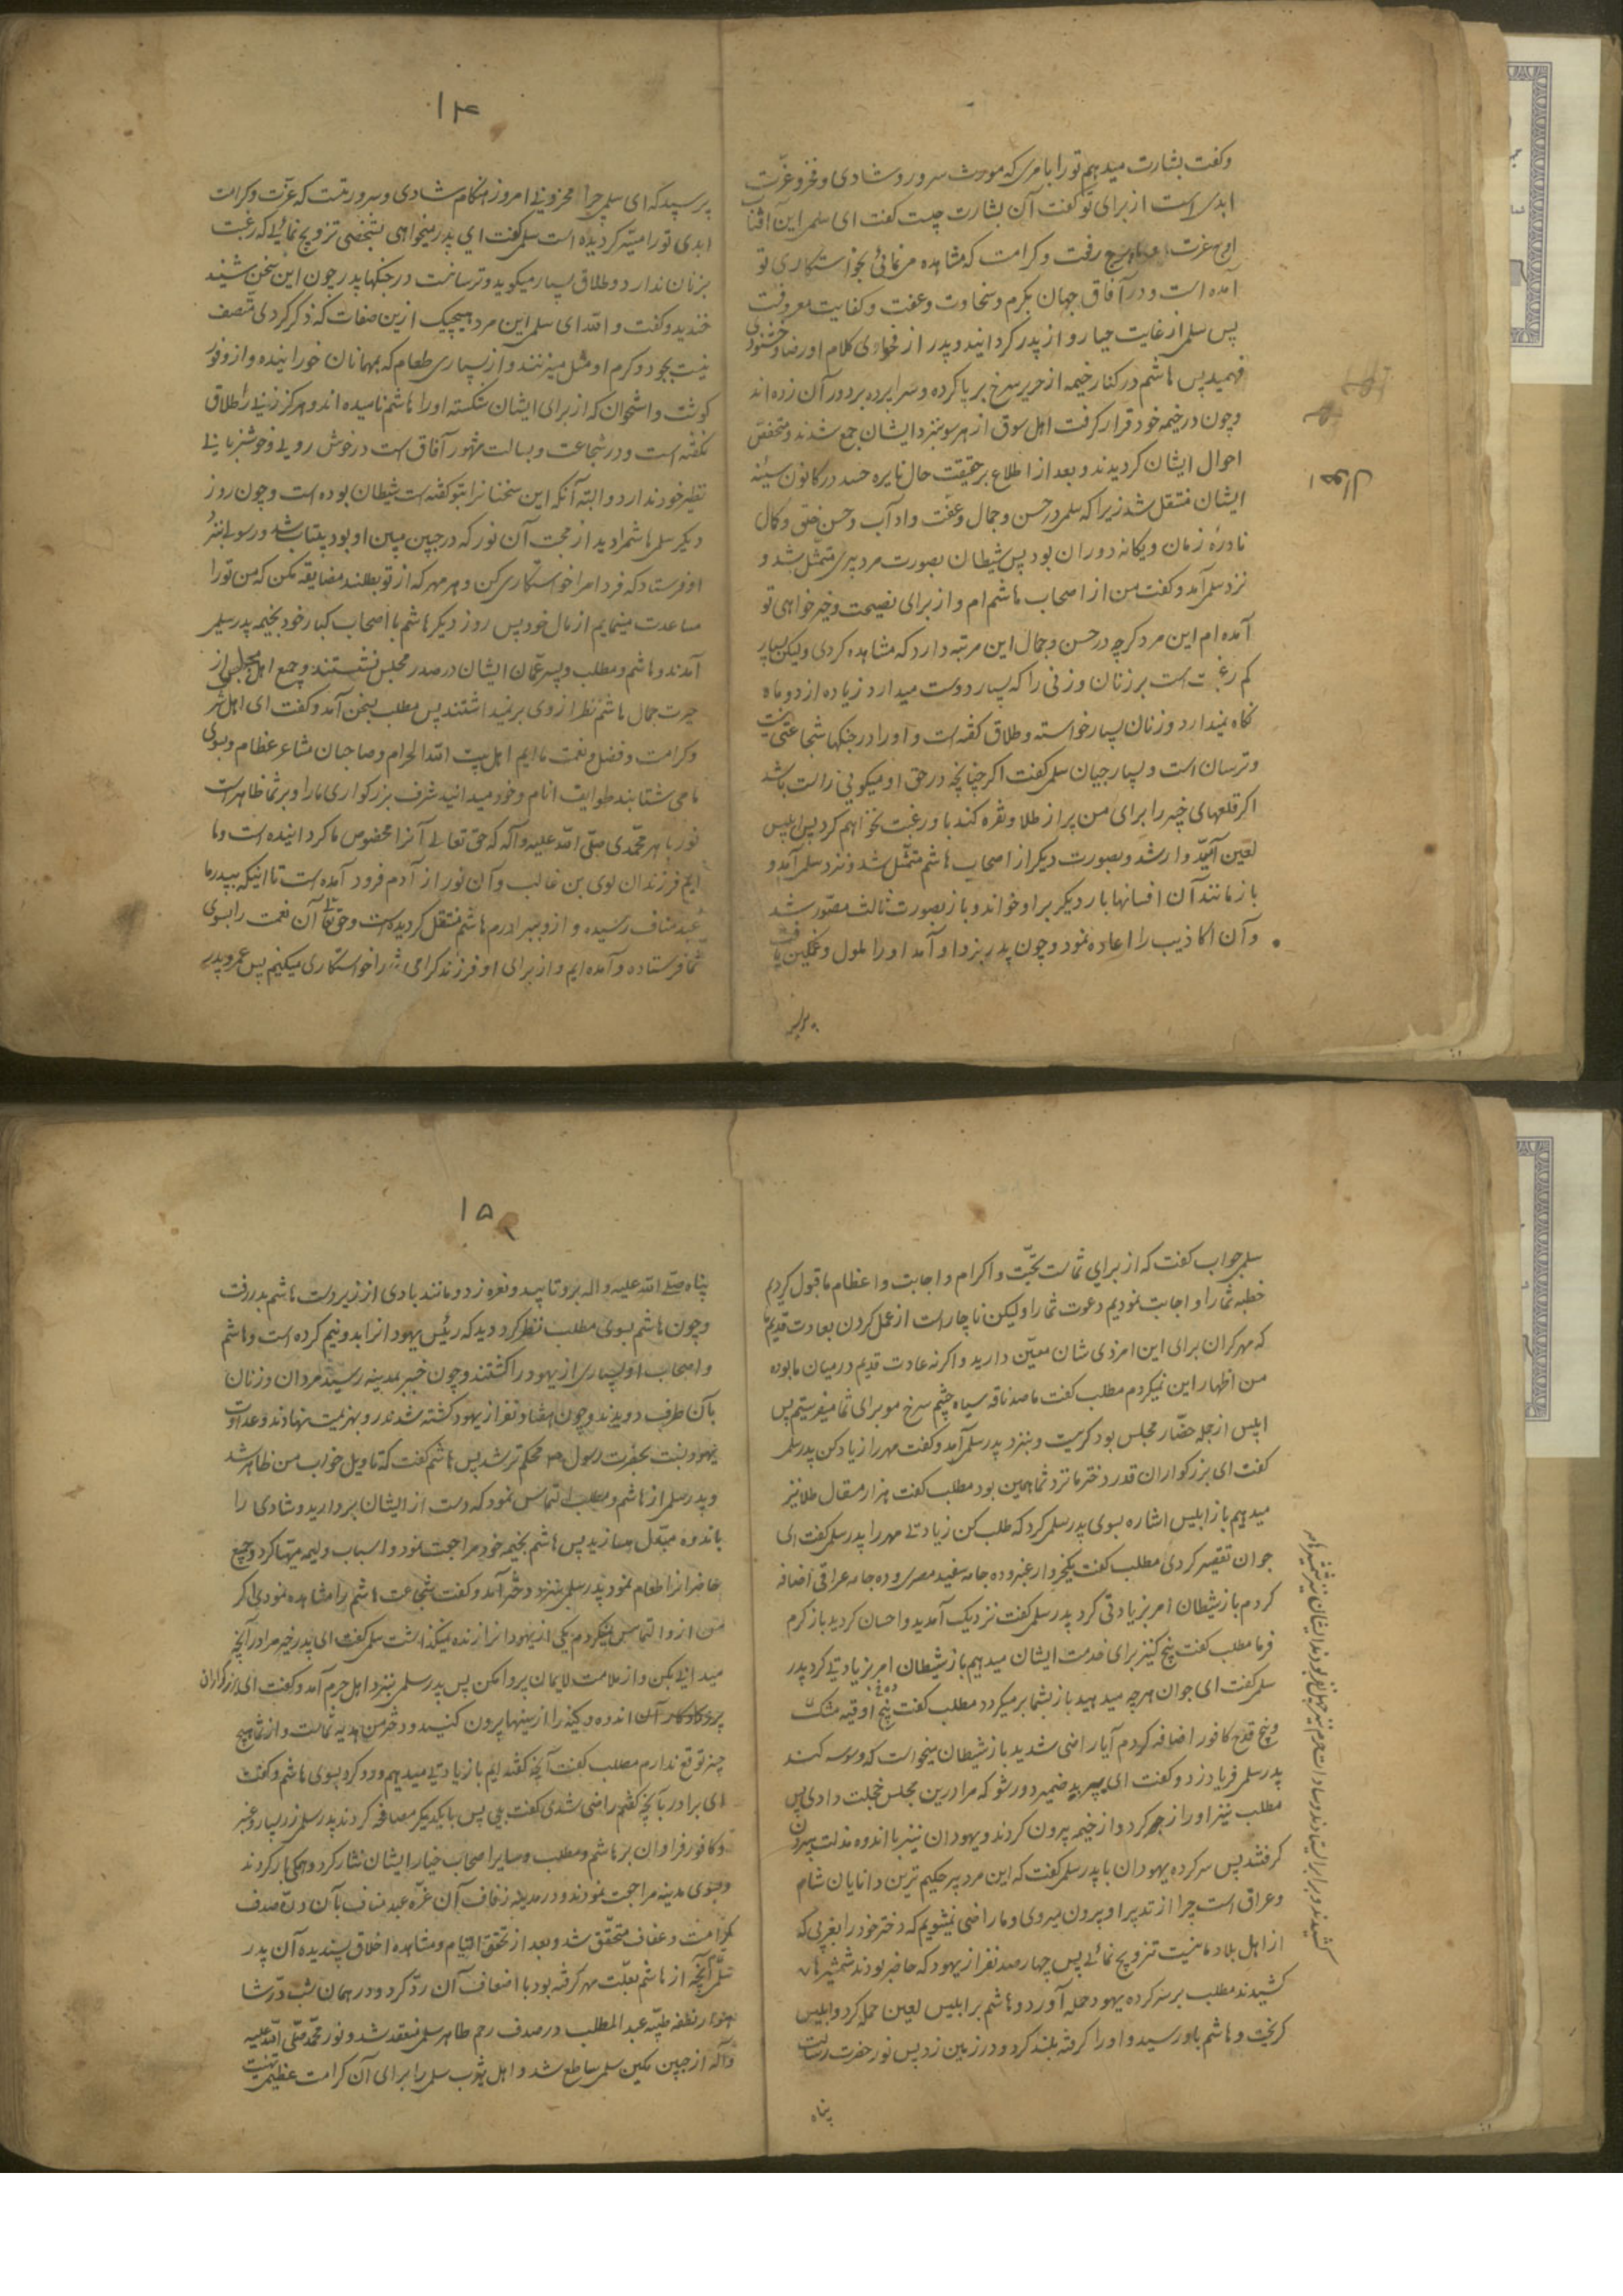 وکفت بشارت میدهم تو را بامری که مورث سرور و شادی و فخر و عزّت
ابدی است از برای تو کفت آن بشارت چیست کفت ای سلمی این آفتاب
اوج عزت رفعت و کرامت که مشاهده مینمائی بخواستکاری تو
آمده است و در آفاق جهان بکرم و سخاوت و عفت و کفایت معروفست
پس سلمی از غایت حیا رو از پدر کردانید و پدر از فحوای کلام او رضا و خشنودی
فهمید پس هاشم در کنار خیمه از حریر سرخ بر پا کرده و سراپرده بر دور آن زده اند
و چون در خیمه خود قرار کرفت اهل سوق از هر سو بنزد ایشان جمع شدند و متفحص
احوال ایشان کردیدند و بعد از اطلاع بر حقیقت حال نایره حسد در کانون سینه
ایشان مشتعل شد زیرا که سلمی در حسن و جمال و عفّت و ادآب و حسن خلق و کمال
نادرهٔ زمان و یکانه دوران بود پس شیطان بصورت مرد پیری متمثّل شد و
نزد سلمی آمد و کفت من از اصحاب هاشم ام و از برای نصیحت و خیرخواهی تو
آمده ام این مرد کرچه در حسن و جمال این مرتبه دارد که مشاهده کردی ولیکن بسیار
کم رغبت است بر زنان و زنی را که بسیار دوست میدارد زیاده از دو ماه
نکاه نمیدارد و زنان بسیار خواسته و طلاق کفته است و او را در جنکها شجاعتی نیست
و ترسان است و بسیار جبان سلمی کفت اکر چنانچه در حق او میکویی راست باشد
اکر قلعهای خیبر را برای من پر از طلا و نقره کند باو رغبت نخواهم کرد پس ابلیس
لعین امیدوار شد و بصورت دیکر از اصحاب هاشم متمثّل شد و نزد سلمی آمد و
باز مانند آن افسانها بار دیکر بر او خواند و باز بصورت ثالث مصوّر شد
و آن اکاذیب را اعاده نمود و چون پدر بنزد او آمد او را ملول و غمکین یافت
پرسید
احوال
۱۴
پرسید که ای سلمی چرا محزونی امروز هنکام شادی و سرور تست که عزّت و کرامت
ابدی تو را میسّر کردیده است سلمی کفت ای پدر میخواهی بشخصی تزویج نمائی که رغبت
بزنان ندارد و طلاق بسیار میکوید و ترسانست در جنکها پدر چون این سخن شنید
خندید و کفت والله ای سلمی این مرد بهیچیک ازین صفات که ذکر کردی متّصف
نیست بجود و کرم او مثل میزنند و از بسیاری طعام که بمهمانان خورانیده و از وفور
کوشت و استخوان که از برای ایشان شکسته او را هاشم نامیده اند و هرکز زنی را طلاق
نکفته است و در شجاعت و بسالت مشهور آفاق است در خوش رویی و خوشزبانی
نظیر خود ندارد و البته آنکه این سخنانرا بتو کفته است شیطان بوده است و چون روز
دیکر سلمی هاشم را دید از محبت آن نور که در جبین مبین او بود بیتاب شد و رسولی بنزد
او فرستاد که فردا مرا خواستکاری کن و هر مهر که از تو بطلبند مضایقه مکن که من تو را
مساعدت مینمایم از مال خود پس روز دیکر هاشم با اصحاب کبار خود بخیمه پدر سلمی
آمدند و هاشم و مطلب و پسر عمّان ایشان در صدر مجلس نشستند و جمع اهل مجلس از
حیرت جمال هاشم نظر از وی برنمیداشتند پس مطلب بسخن آمد و کفت ای اهل شرف
و کرامت و فضل و نعمت ما ایم اهل بیت الله الحرام و صاحبان مشاعر عظام و بسوی
ما می شتابند طوایف انام و خود میدانید شرف بزرکواری ما را و بر شما ظاهر است
نور باهر محمّدی صلّی الله علیه وآله که حق تعالی آنرا مخصوص ما کردانیده است و ما
ایم فرزندان لوی بن غالب و آن نور از آدم فرود آمده است تا اینکه بپدر ما
عبد مناف رسیده و ازو ببرادرم هاشم منتقل کردیده است و حق تعالی آن نعمت را بسوی
شما فرستاده و آمده ایم و از برای او فرزند کرامی شما را خواستکاری میکنیم پس عمرو پدر
سلمی جواب کفت که از برای شماست تحیّت و اکرام و اجابت و اعظام ما قبول کردیم
خطبه شما را و اجابت نمودیم دعوت شما را ولیکن ناچار است از عمل کردن بعادت قدیم ما
که مهر کران برای این امر ذی شان معیّن دارید و اکر نه عادت قدیم در میان ما بوده
من اظهار این نمیکردم مطلب کفت ما صد ناقه سیاه چشم سرخ مو برای شما میفرستیم پس
ابلیس از جمله حضّار مجلس بود کریست و بنزد پدر سلمی آمد و کفت مهر را زیاد کن پدر سلمی
کفت ای بزرکواران قدر دختر ما نزد شما همین بود مطلب کفت هزار مثقال طلا نیز
میدهیم باز ابلیس اشاره بسوی پدر سلمی کرد که طلب کن زیادتی مهر را پدر سلمی کفت ای
جوان تقصیر کردی مطلب کفت یکخروار عنبر و ده جامه سفید مصری و ده جامه عراقی اضافه
کردم باز شیطان امر بزیادتی کرد پدر سلمی کفت نزدیک آمدید و احسان کردید باز کرم
فرما مطلب کفت پنج کنیز برای خدمت ایشان میدهیم باز شیطان امر بزیادتی کرد پدر
سلمی کفت ای جوان هرچه میدهید باز بشما برمیکردد مطلب کفت پنج اوقیه مشک
و پنج قدح کافور اضافه کردم آیا راضی شدید باز شیطان میخواست که وسوسه کند
پدر سلمی فریاد زد و کفت ای پیر بد ضمیر دور شو که مرا درین مجلس خجلت دادی پس
مطلب نیز او را زجر کرد و از خیمه بیرون کردند و یهودان نیز با اندوه مذلت بیرون
کرفتند پس سرکرده یهودان با پدر سلمی کفت که این مرد پیر حکیم ترین دانایان شام
و عراق است چرا از تدبیر او بیرون میروی و ما راضی نمیشویم که دختر خود را بغریبی که
از اهل بلاد ما نیست تزویج نمائی پس چهارصد نفر از یهود که حاضر بودند شمشیرها
کشیدند مطلب بر سرکرده یهود حمله آورد و هاشم بر ابلیس لعین حمله کرد و ابلیس
کریخت و هاشم باو رسید و او را کرفته بلند کرد و در زمین زد پس نور حضرت رسالت
پناه
کشیدند و برابر ایستادند و سادات حرم نیز چهل نفر بودند ایشان نیز شمشیرها
۱۵
پناه صلی الله علیه واله برو تابید و نعره زد و مانند بادی از زیر دست هاشم بدر رفت
و چون هاشم بسوی مطلب نظر کرد دید که رئیس یهود انرا بدو نیم کرده است و هاشم
و اصحاب او بسیاری از یهود را کشتند و چون خبر بمدینه رسید مردان و زنان
بآن طرف دویدند و چون هفتاد نفر از یهود کشته شدند رو بهزیمت نهادند و عداوت
یهود نسبت بحضرت رسول ص محکم تر شد پس هاشم کفت که تاویل خواب من ظاهر شد
و پدر سلمی از هاشم و مطلب التماس نمود که دست از ایشان بردارید و شادی را
باندوه مبدّل مسازید پس هاشم بخیمه خود مراجعت نمود و اسباب ولیمه مهیّا کرد و جمیع
حاضرانرا طعام نمود پدر سلمی بنزد دختر آمد و کفت شجاعت هاشم را مشاهده نمودی اکر
من ازو التماس نمیکردم یکی از یهودانرا زنده نمیکذاشت سلمی کفت ای پدر خیر مرا در آنچه
میدانی بکن و از ملامت لایمان پروا مکن پس پدر سلمی بنزد اهل حرم آمد و کفت ای بزرکواران
اندوه و کینه را از سینها بیرون کنید و دختر من هدیه شماست و از شما هیچ
چیز توقع ندارم مطلب کفت آنچه کفته ایم باز یادتی میدهیم و رو کرد بسوی هاشم و کفت
ای برادر بآنچه کفتم راضی شدی کفت بلی پس با یکدیکر مصافحه کردند پدر سلمی زر بسیار و عنبر
و کافور فراوان بر هاشم و مطلب و سایر اصحاب خیار ایشان نثار کرد و همکی بار کردند
و بسوی مدینه مراجعت نمودند و در مدینه زفاف آن غرّه عبد مناف بآن درّ صدف
کرامت و عفاف متحقّق شد و بعد از تحقق التیام و مشاهده اخلاق پسندیده آن پدر
سلمی آنچه از هاشم بعلّت مهر کرفته بود با اضعاف آن ردّ کرد و در همان شب درّ شا
هوار نطفه طیّبه عبد المطلب در صدف رحم طاهر سلمی منعقد شد و نور محمّد صلّی الله علیه
وآله از جبین مکین سلمی ساطع شد و اهل یثرب سلمی را برای آن کرامت عظیم تهنیت